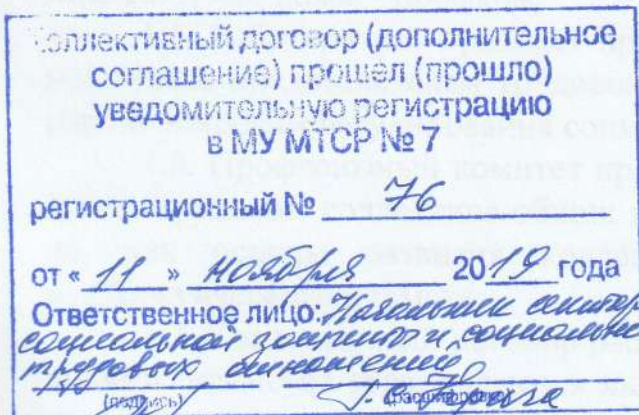 Коллективный договор (дополнительное
соглашение) прошел (прошло)
уведомительную регистрацию
в МУ МТСР № 7
регистрационный № 76
от « 11 » ноября 2019 года
Ответственное лицо: Начальник сектора
социальной защиты и социально
трудовых отношений
(подпись) (расшифровка)